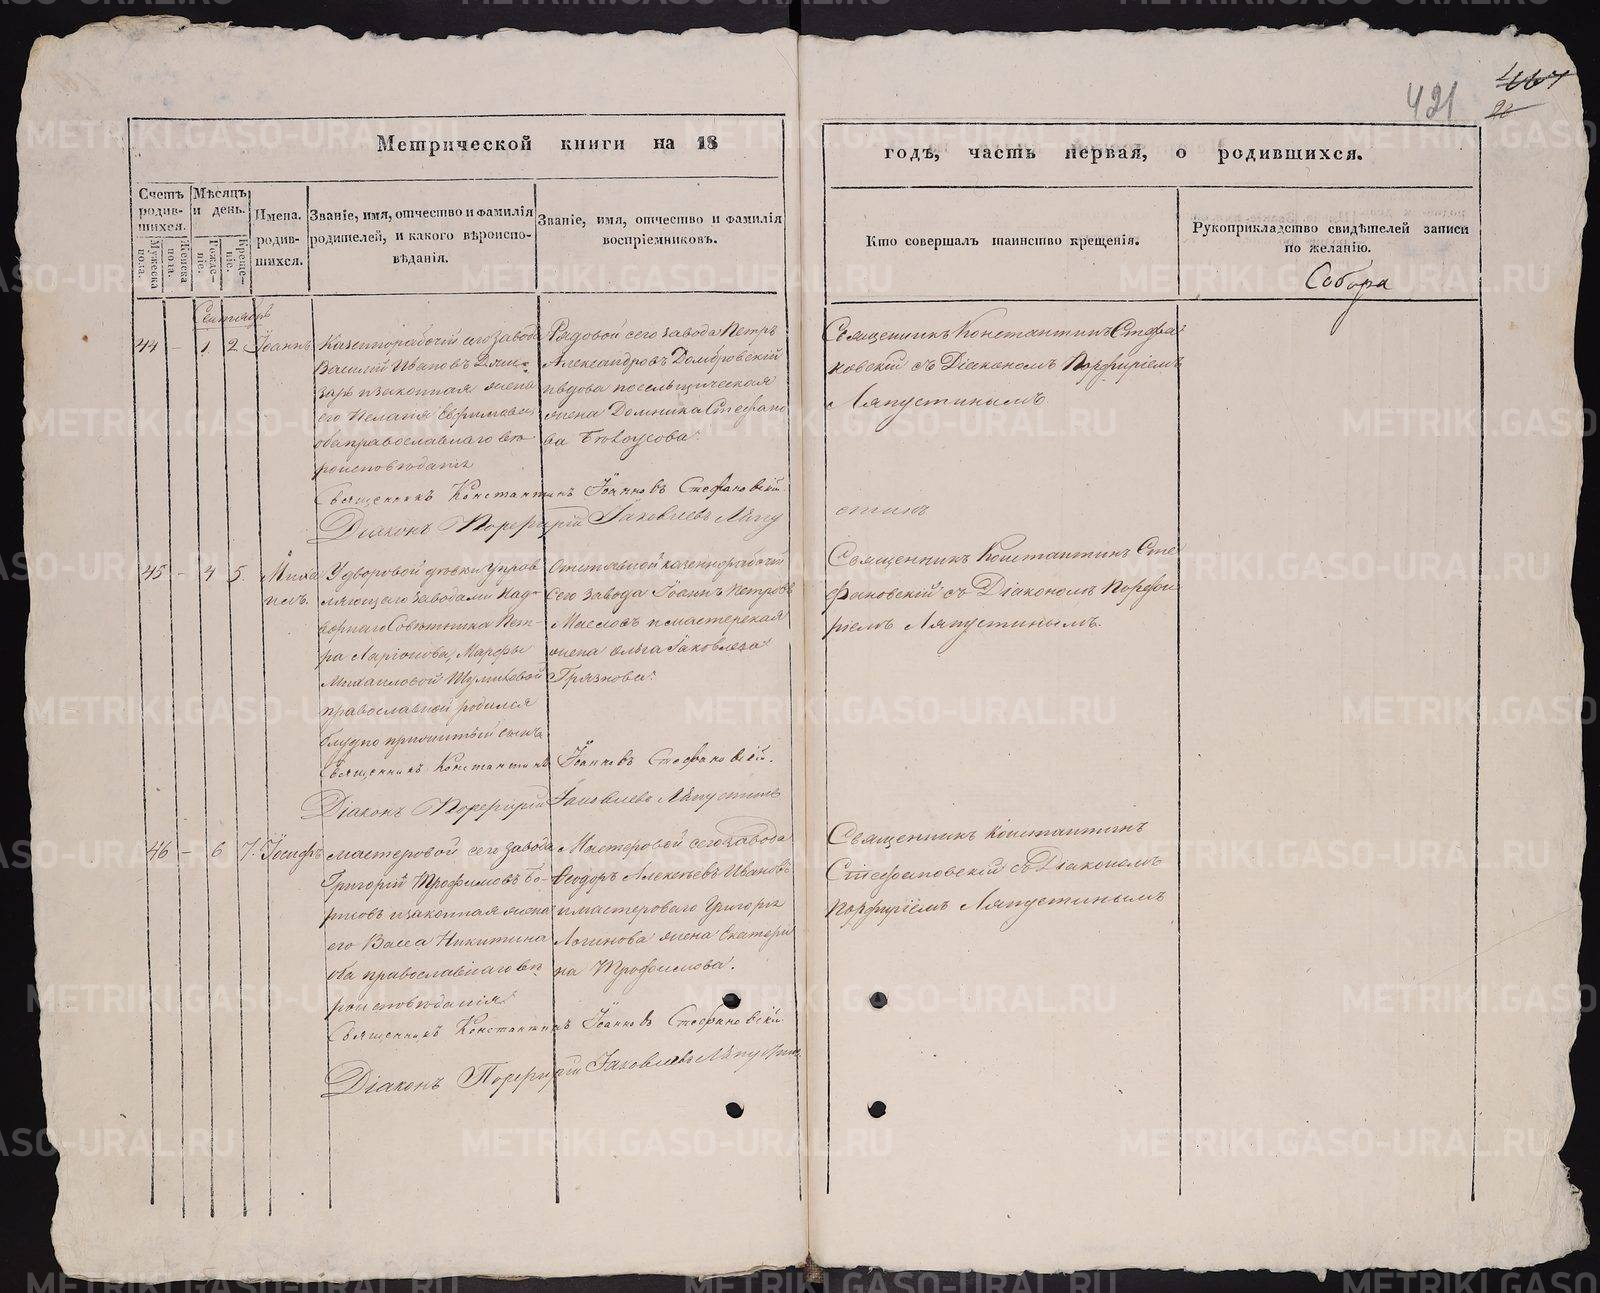 421
467
20
Метрической книги на 18
годъ, часть первая, о родившихся.
Счетъ родив-шихся.
Мужеска пола.
Женска пола.
Мѣсяцъ и день.
Рожде-ніе.
Креще-ніе.
Имена. родив-шихся.
Званіе, имя, отчество и фамилія
родителей, и какого вѣроиспо-
вѣданія.
Званіе, имя, отчество и фамилія
воспріемниковъ.
Кто совершалъ таинство крещенія.
Рукоприкладство свидѣтелей записи
по желанію.
Собора
Сентябрь
44 - 1 2 Іоаннъ
Казеннорабочій сего завода
Василій Ивановъ
и законная жена
его Пелагія Ефимова
оба православнаго вѣ-
роисповѣданія
Рядовой сего завода Петръ
Александровъ Домбровскій
и вдова посельщическая
жена Домника Стефано
ва Бѣлоусова.
Священникъ Константинъ Іоанновъ Стефановскій
Діаконъ Порфирій Іаковлевъ Ляпу
стинъ
Священникъ Константинъ Стефа
новскій съ Діакономъ Порфиріемъ
Ляпустинымъ
45 - 4 5. Миха
илъ.
У дворовой дѣвки управ
ляющаго заводами Над-
ворнаго Совѣтника Пет-
ра Ларіонова, Марфы
Михаиловой Шумиховой
православной родился
блудно прижитый сынъ
Отставной казеннорабочій
сего завода Іоаннъ Петровъ
Масловъ и мастерская
жена Ольга Іаковлева
Грязнова.
Священникъ Константинъ Іоанновъ Стефановскій.
Діаконъ Порфирій Іаковлевъ Ляпустинъ
Священникъ Константинъ Сте
фановскій съ Діакономъ Порфи
ріемъ Ляпустинымъ.
46 - 6 7. Іосифъ
Мастеровой сего завода
Григорій Трофимовъ Бо-
рисовъ и законная жена
его Васса Никитина
оба православнаго вѣ-
роисповѣданія
Мастеровой сего завода
Ѳеодоръ Алексѣевъ Ивановъ
и мастероваго Григорія
Логинова жена Екатери
на Трофимова.
Священникъ Константинъ Іоанновъ Стефановскій
Діаконъ Порфирій Іаковлевъ Ляпустинъ
Священникъ Константинъ
Стефановскій съ Діакономъ
Порфиріемъ Ляпустинымъ
METRIKI.GASO-URAL.RU